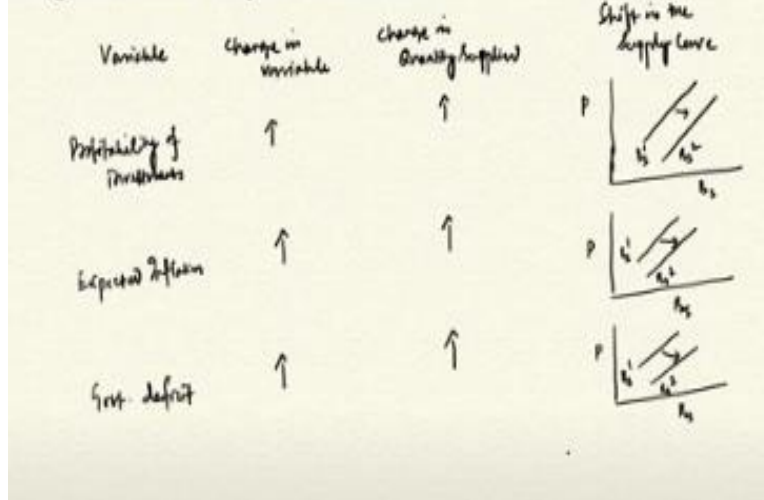 Variable
Change in
variable
Change in
Quantity Supplied
Shift in the
Supply Curve
Profitability of
Investments
↑
↑
P
Bs¹
Bs²
Bs
Expected Inflation
↑
↑
P
Bs¹
Bs²
Govt. deficit
↑
↑
P
Bs¹
Bs²